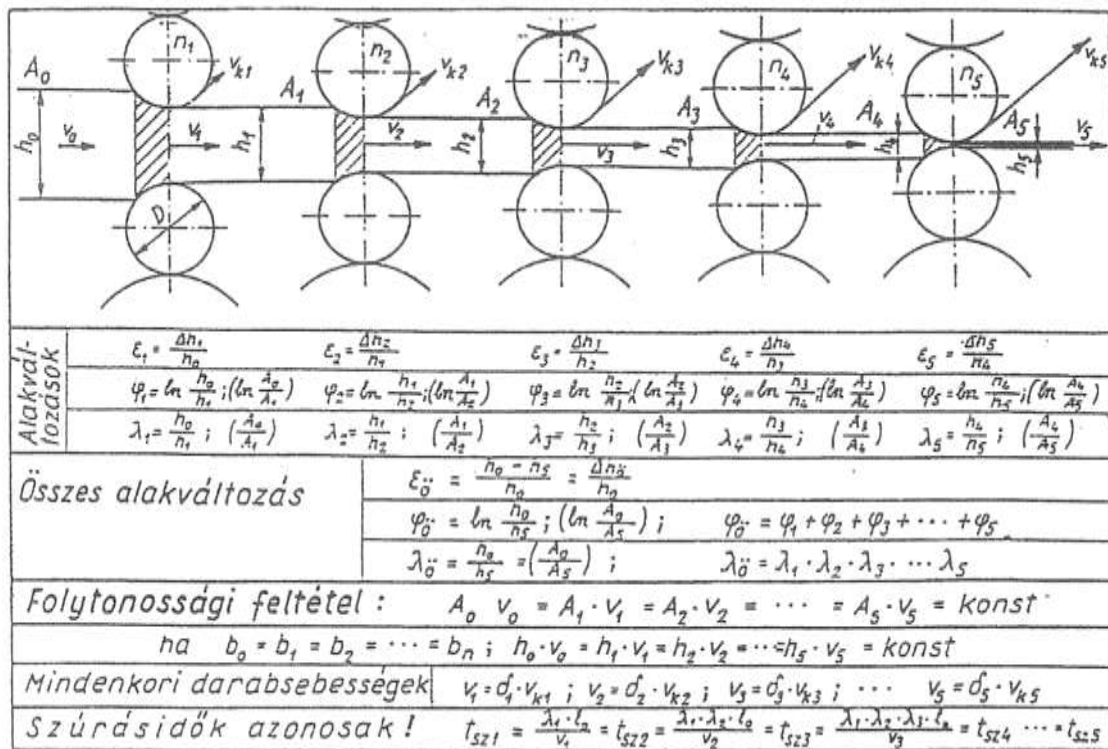 n₁ n₂ n₃ n₄ n₅
v_k1 v_k2 v_k3 v_k4 v_k5
A₀ A₁ A₂ A₃ A₄ A₅
h₀ v₀ v₁ h₁ v₂ h₂ v₃ h₃ v₄ h₄ h₅ v₅
D
Alakvál-
tozások
ε₁ = Δh₁/h₀ ε₂ = Δh₂/h₁ ε₃ = Δh₃/h₂ ε₄ = Δh₄/h₃ ε₅ = Δh₅/h₄
φ₁ = ln h₀/h₁; (ln A₀/A₁) φ₂ = ln h₁/h₂; (ln A₁/A₂) φ₃ = ln h₂/h₃; (ln A₂/A₃) φ₄ = ln h₃/h₄; (ln A₃/A₄) φ₅ = ln h₄/h₅; (ln A₄/A₅)
λ₁ = h₀/h₁ ; (A₀/A₁) λ₂ = h₁/h₂ ; (A₁/A₂) λ₃ = h₂/h₃ ; (A₂/A₃) λ₄ = h₃/h₄ ; (A₃/A₄) λ₅ = h₄/h₅ ; (A₄/A₅)
Összes alakváltozás
ε_ö = (h₀ − h₅)/h₀ = Δh_ö/h₀
φ_ö = ln h₀/h₅ ; (ln A₀/A₅) ; φ_ö = φ₁ + φ₂ + φ₃ + ··· + φ₅
λ_ö = h₀/h₅ = (A₀/A₅) ; λ_ö = λ₁ · λ₂ · λ₃ · ··· λ₅
Folytonossági feltétel : A₀ v₀ = A₁ · v₁ = A₂ · v₂ = ··· = A₅ · v₅ = konst
ha b₀ = b₁ = b₂ = ··· = bₙ ; h₀ · v₀ = h₁ · v₁ = h₂ · v₂ = ··· = h₅ · v₅ = konst
Mindenkori darabsebességek v₁ = δ₁ · v_k1 ; v₂ = δ₂ · v_k2 ; v₃ = δ₃ · v_k3 ; ··· v₅ = δ₅ · v_k5
Szúrásidők azonosak! t_sz1 = λ₁ · l₀/v₁ = t_sz2 = λ₁ · λ₂ · l₀/v₂ = t_sz3 = λ₁ · λ₂ · λ₃ · l₀/v₃ = t_sz4 ··· = t_sz5